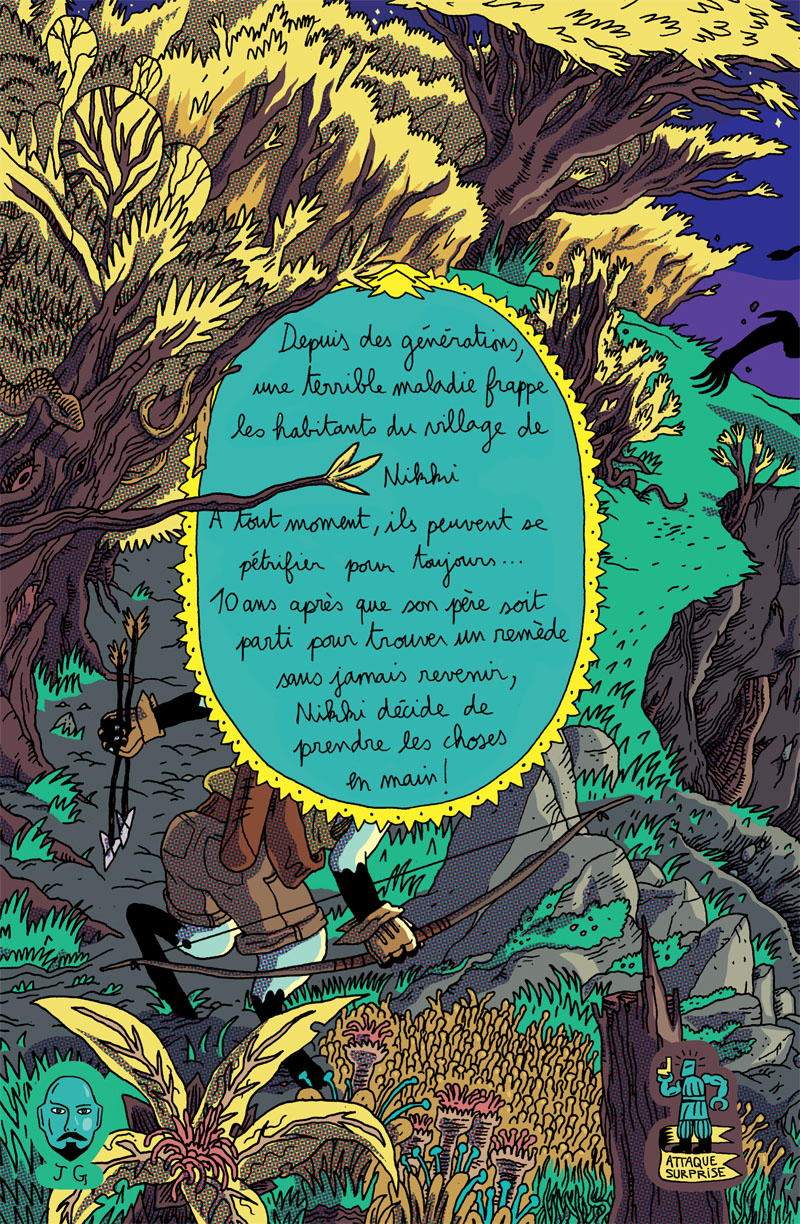 Depuis des générations,
une terrible maladie frappe
les habitants du village de
Nikki
A tout moment, ils peuvent se
pétrifier pour toujours...
10 ans après que son père soit
parti pour trouver un remède
sans jamais revenir,
Nikki décide de
prendre les choses
en main!
JG
ATTAQUE
SURPRISE